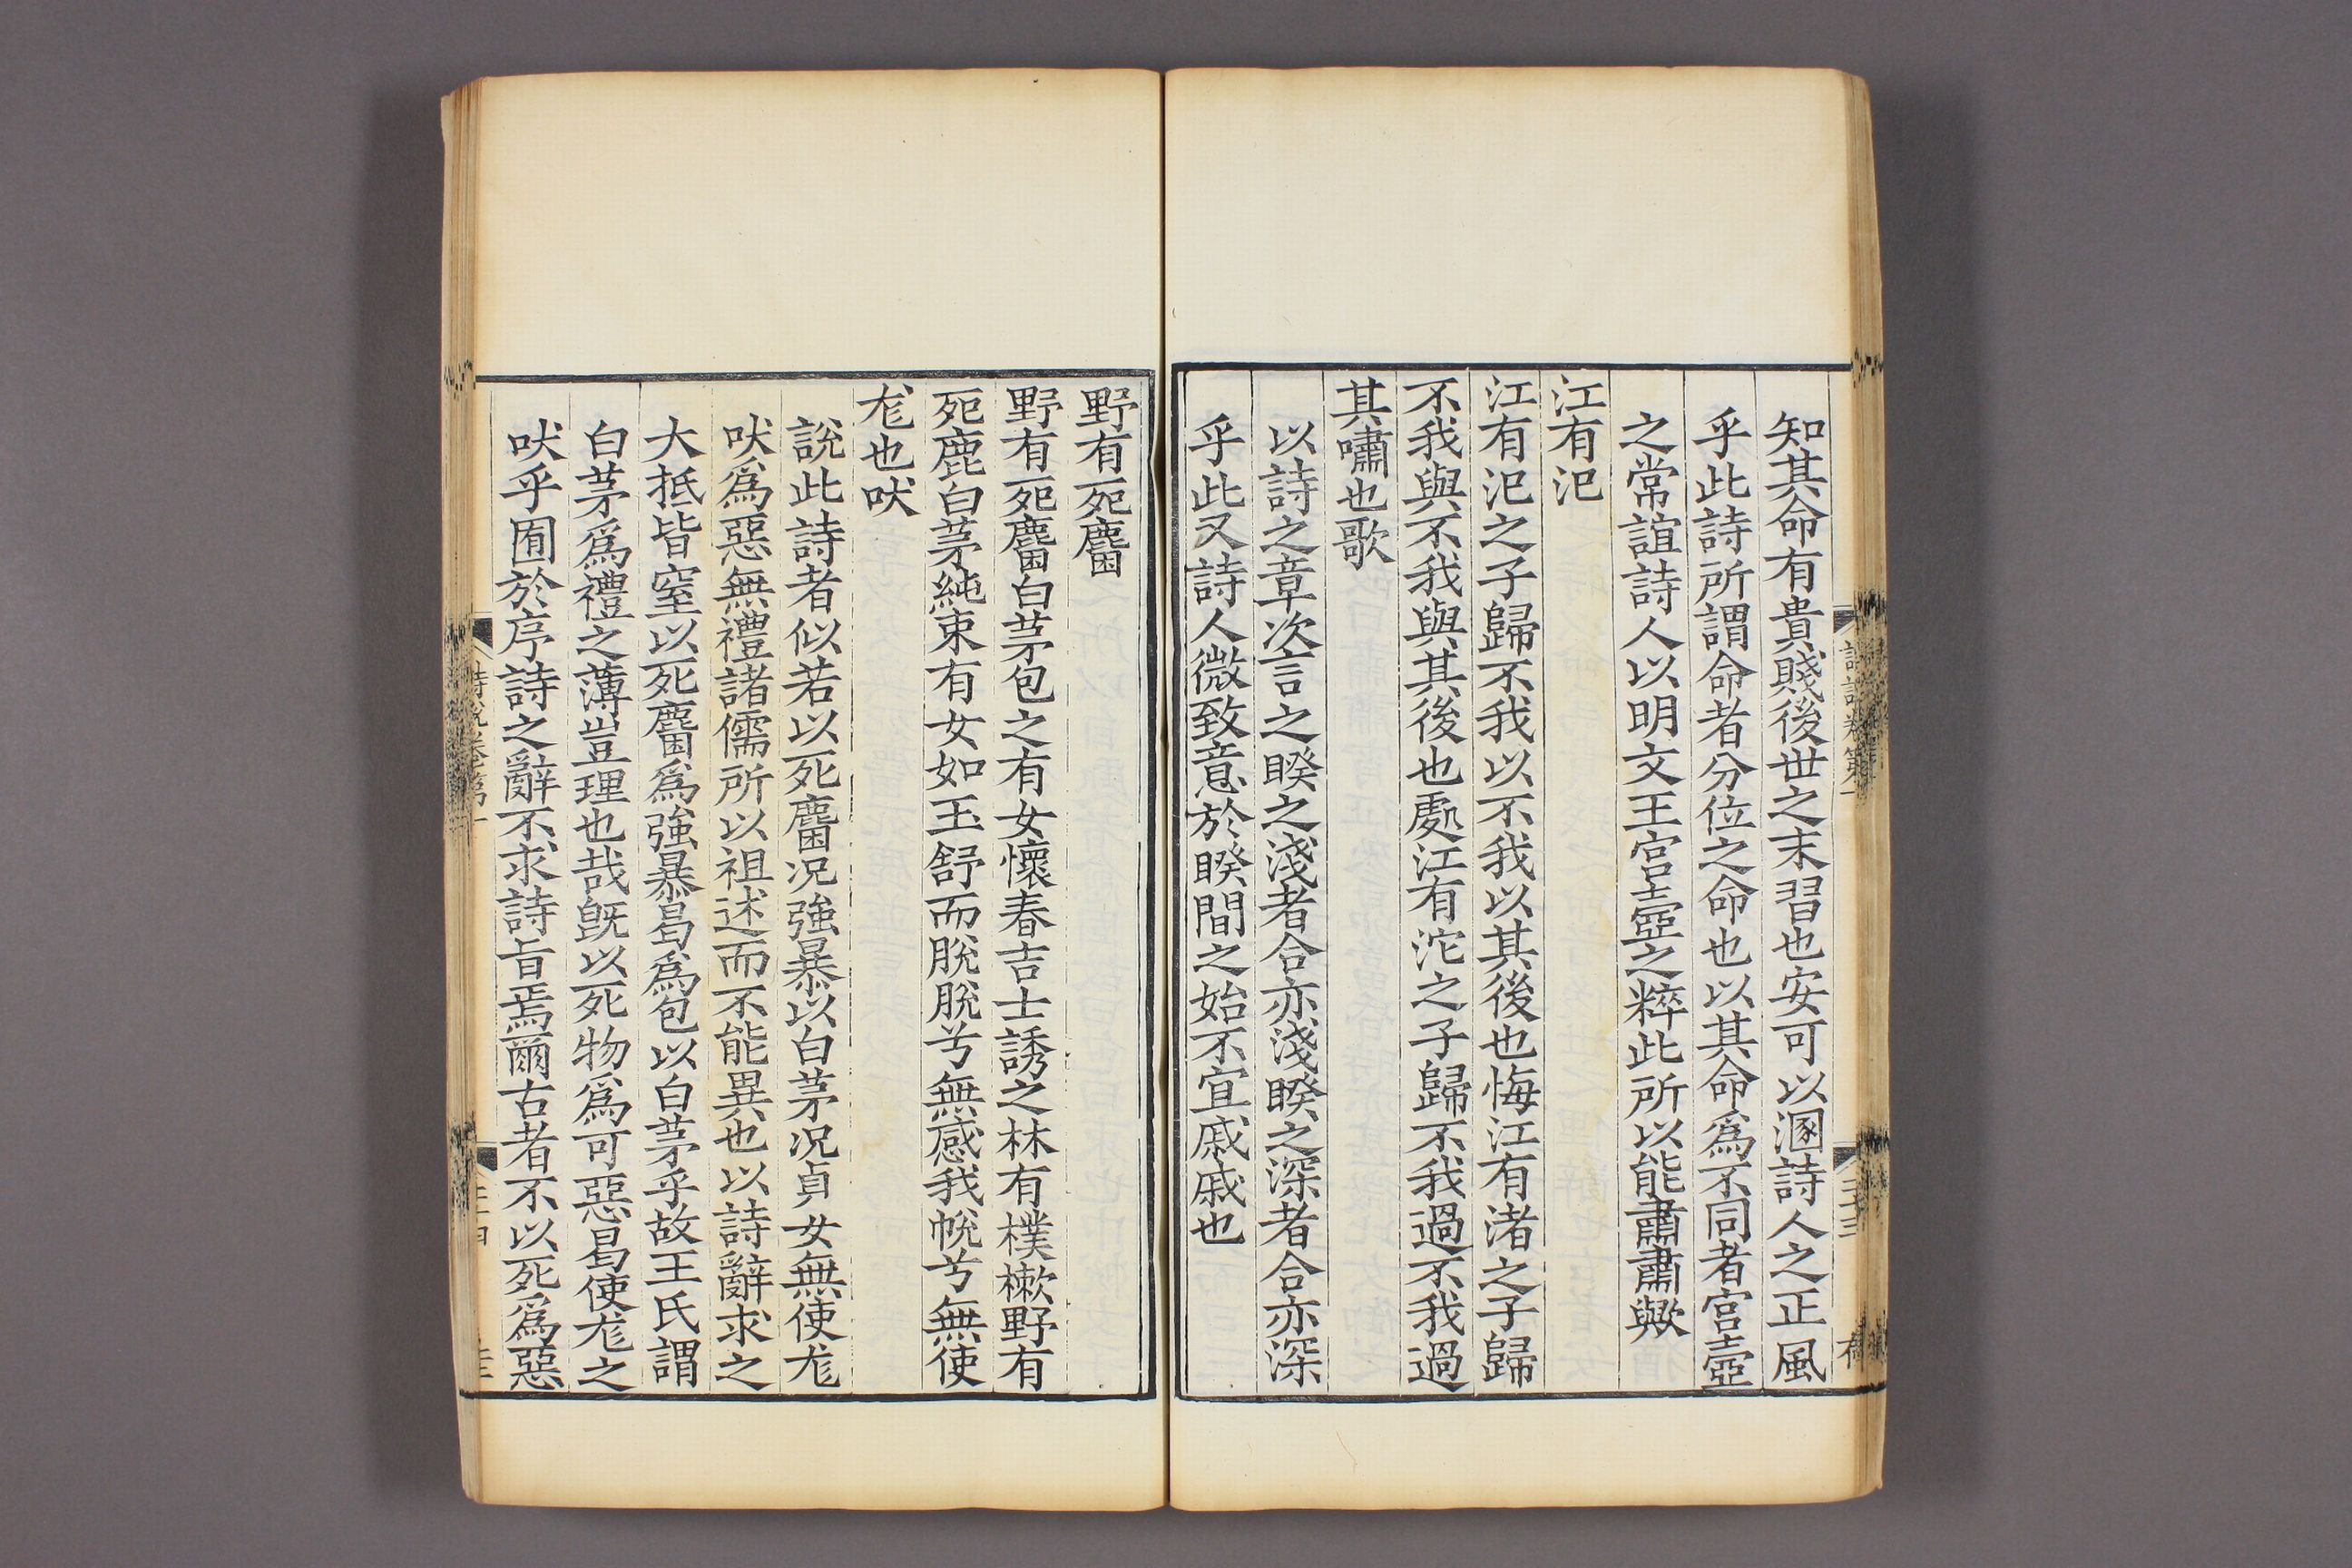 知其命有貴賤後世之末習也安可以溷詩人之正風
乎此詩所謂命者分位之命也以其命爲不同者宮壼
之常誼詩人以明文王宮壼之粹此所以能肅肅歟
江有汜
江有汜之子歸不我以不我以其後也悔江有渚之子歸
不我與不我與其後也處江有沱之子歸不我過不我過
其嘯也歌
以詩之章次言之睽之淺者合亦淺睽之深者合亦深
乎此又詩人微致意於睽間之始不宜戚戚也
野有死麕
野有死麕白茅包之有女懷春吉士誘之林有樸樕野有
死鹿白茅純束有女如玉舒而脫脫兮無感我帨兮無使
尨也吠
說此詩者似若以死麕況強暴以白茅況貞女無使尨
吠爲惡無禮諸儒所以祖述而不能異也以詩辭求之
大抵皆窒以死麕爲強暴曷爲包以白茅乎故王氏謂
白茅爲禮之薄豈理也哉旣以死物爲可惡曷使尨之
吠乎囿於序詩之辭不求詩旨焉爾古者不以死爲惡
詩說卷第一
二十三
詩說卷第一
二十四